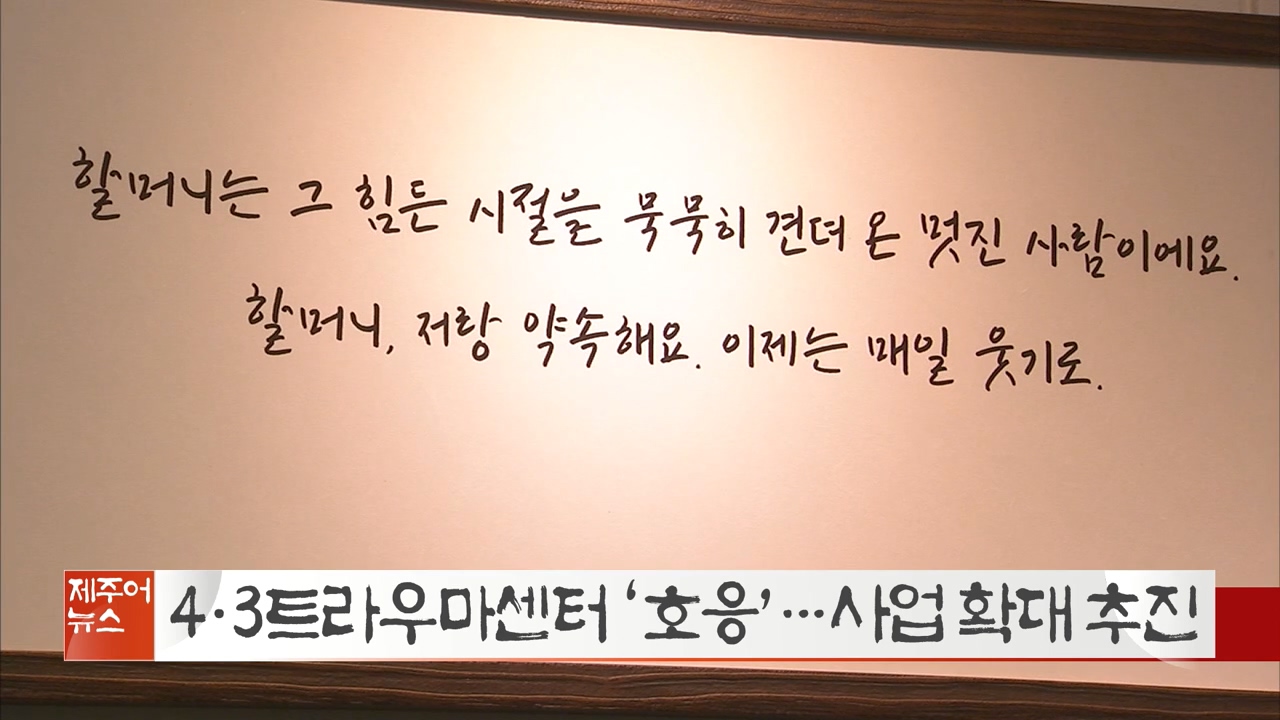 할머니는 그 힘든 시절을 묵묵히 견뎌 온 멋진 사람이에요.
할머니, 저랑 약속해요. 이제는 매일 웃기로.
제주어
뉴스
4·3트라우마센터 ‘호응’…사업 확대 추진